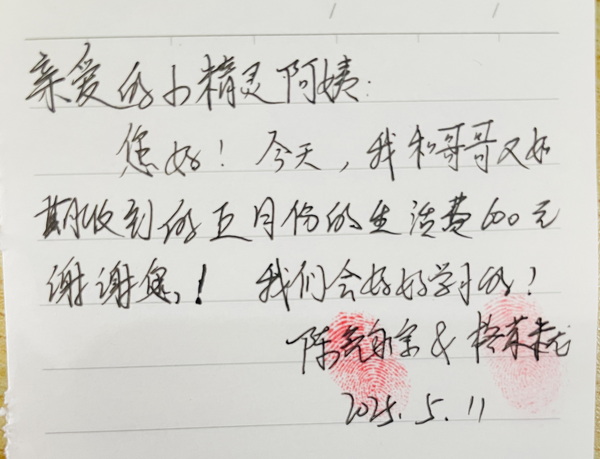 亲爱的小精灵阿姨:
您好！今天，我和哥哥又如
期收到的五月份的生活费600元
谢谢您！ 我们会好好学习的！
陈 宗 &
2025.5.11